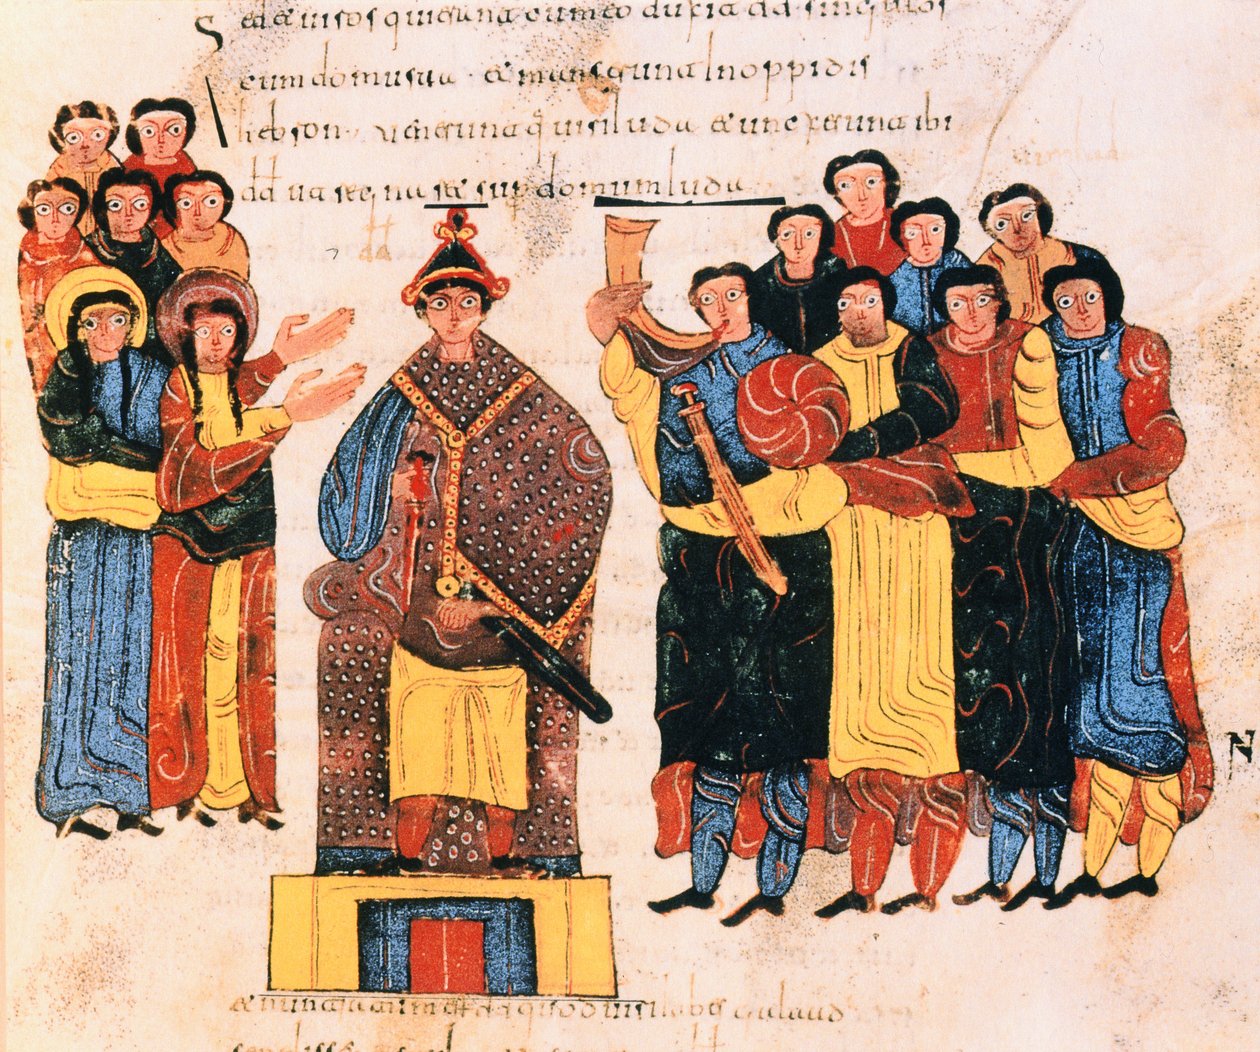 Sed et uiros qui erant cum eo duxit dd singulos
cum domu sua et manserunt In oppidis
hebron. ueneruntq uiri Iuda et unxerunt ibi
dd ut regnaret sup domum Iuda
et nuntiatum est dd quod uiri Iabes galaad
N